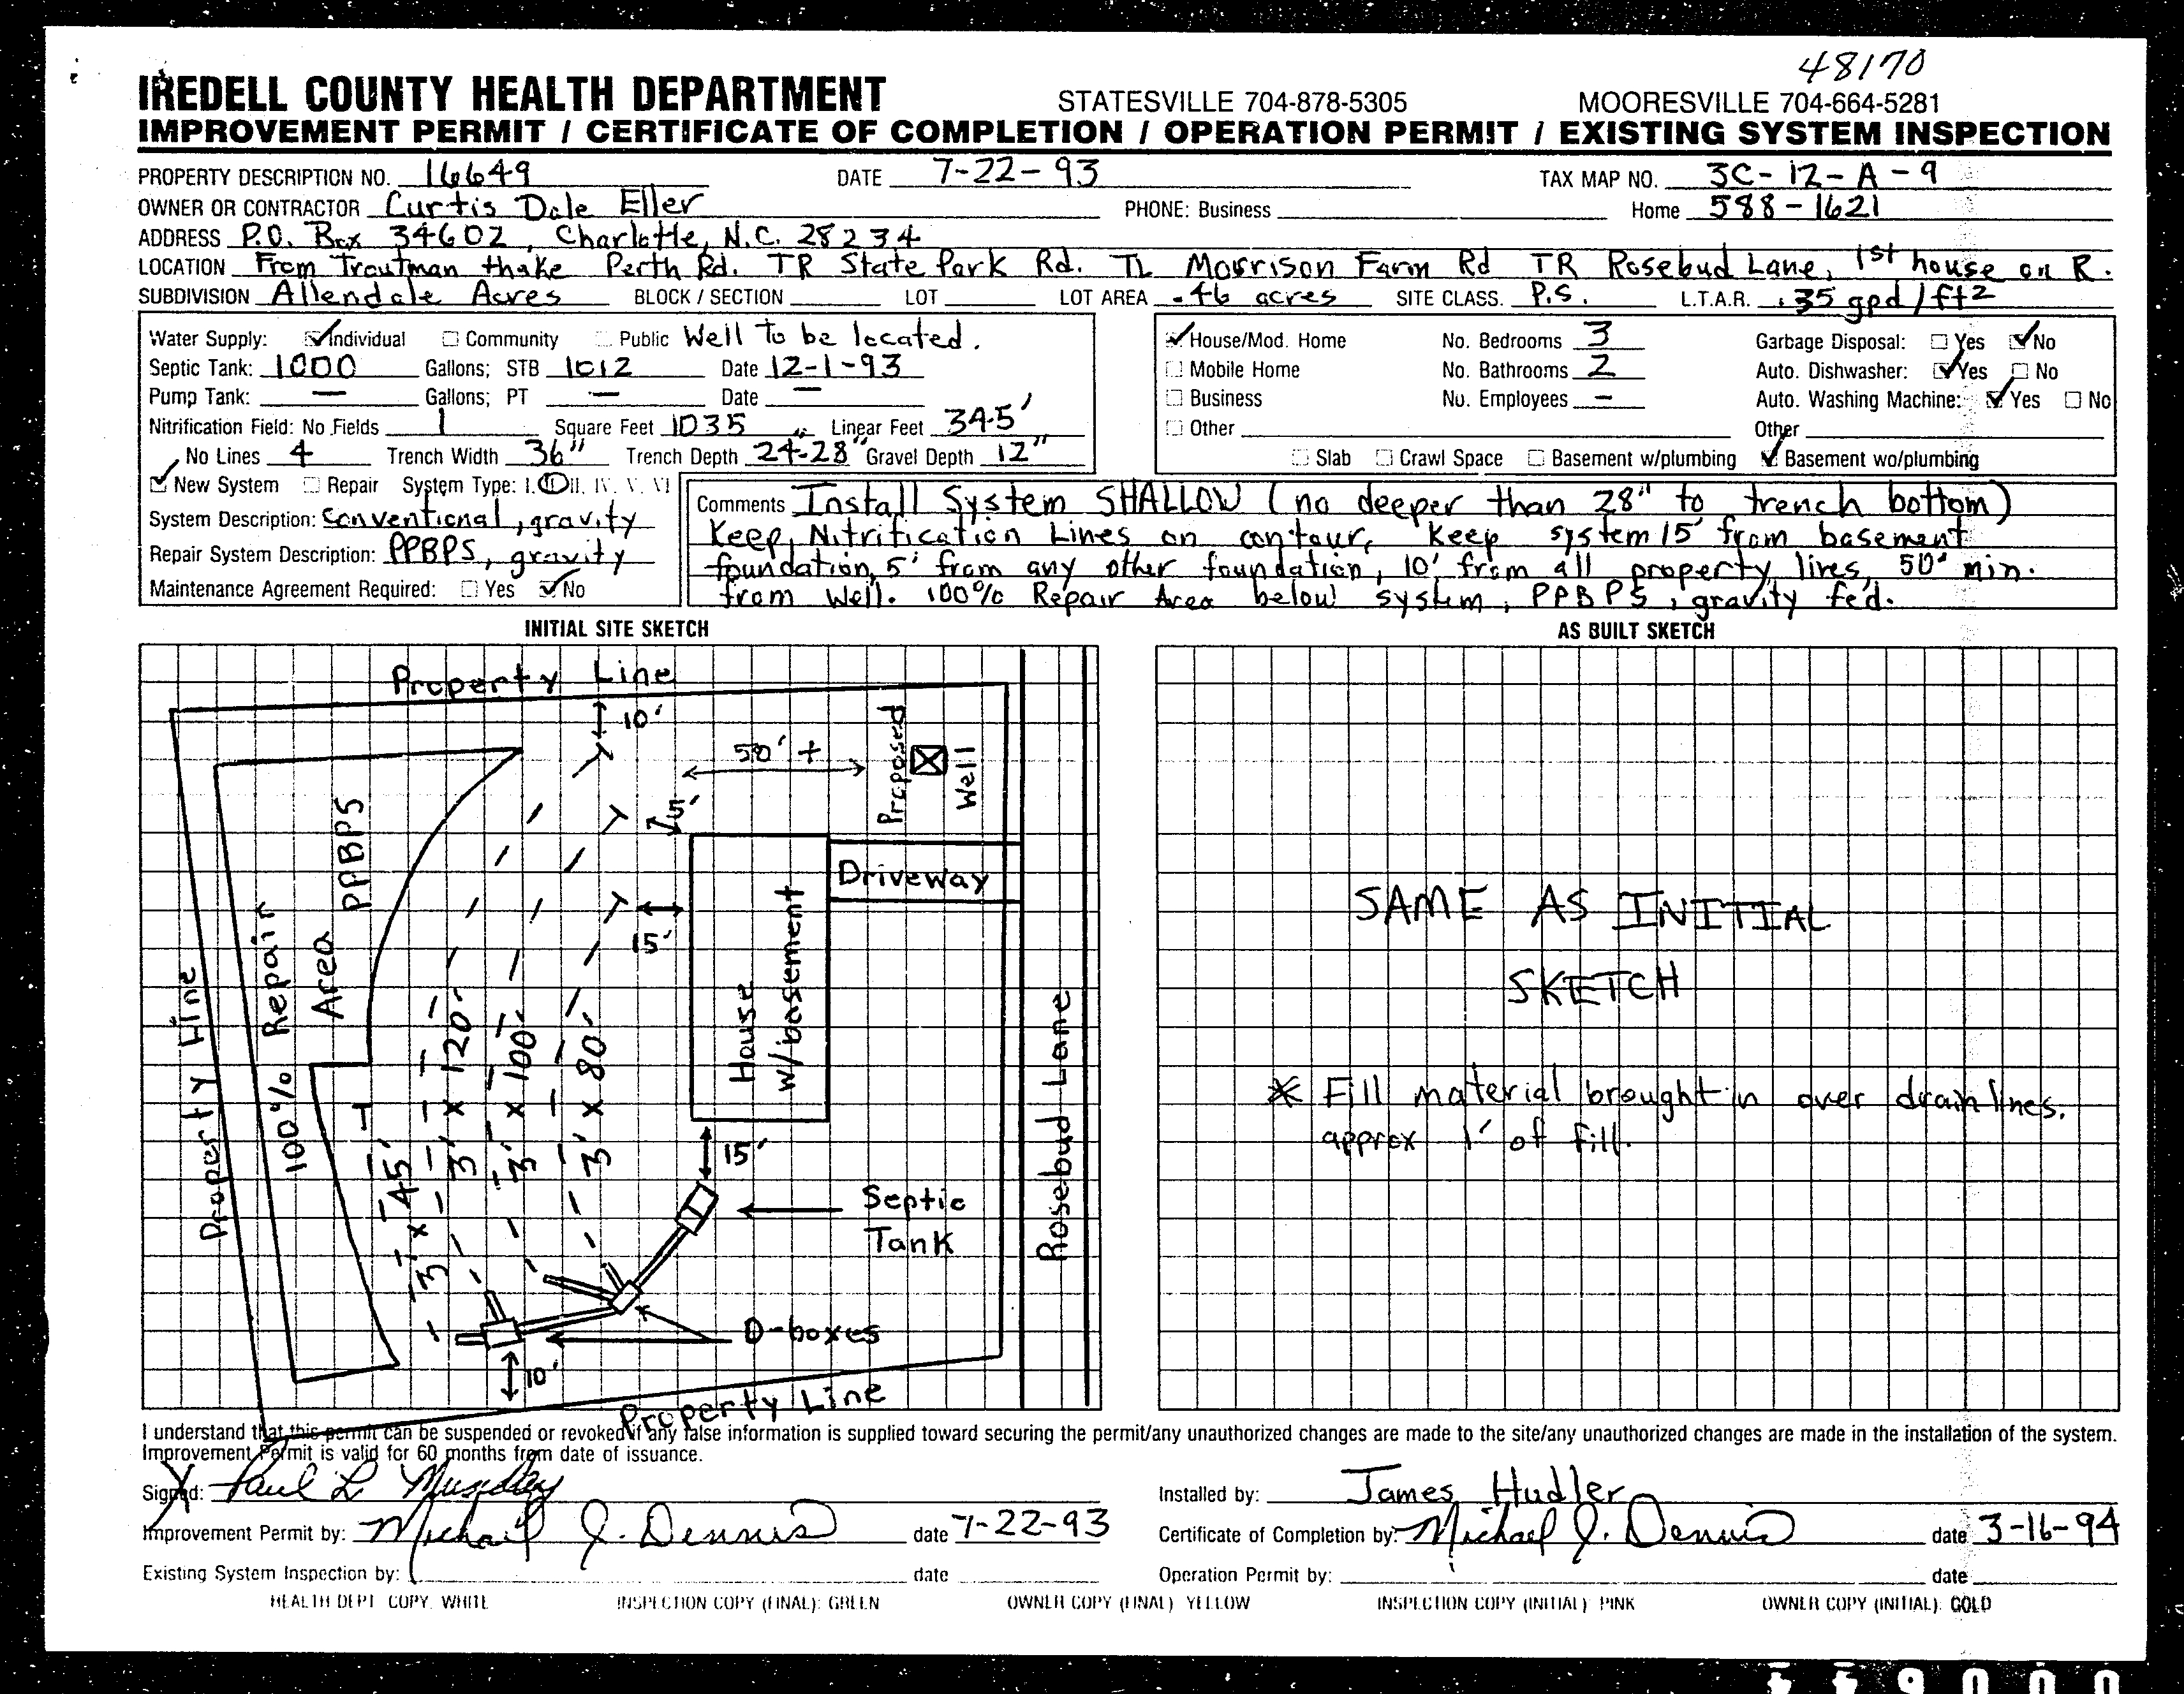 48170
IREDELL COUNTY HEALTH DEPARTMENT STATESVILLE 704-878-5305 MOORESVILLE 704-664-5281
IMPROVEMENT PERMIT / CERTIFICATE OF COMPLETION / OPERATION PERMIT / EXISTING SYSTEM INSPECTION
PROPERTY DESCRIPTION NO. 16649 DATE 7-22-93 TAX MAP NO. 3C-12-A-9
OWNER OR CONTRACTOR Curtis Dale Eller PHONE: Business Home 588-1621
ADDRESS P.O. Box 34602, Charlotte, N.C. 28234
LOCATION From Troutman take Perth Rd. TR State Park Rd. TL Morrison Farm Rd TR Rosebud Lane, 1st house on R.
SUBDIVISION Allendale Acres BLOCK / SECTION LOT LOT AREA .46 acres SITE CLASS. P.S. L.T.A.R. .35 gpd/ft2
Water Supply: Individual Community Public Well to be located.
Septic Tank: 1000 Gallons; STB 1012 Date 12-1-93
Pump Tank: — Gallons; PT — Date —
Nitrification Field: No Fields 1 Square Feet 1035 Linear Feet 345'
No Lines 4 Trench Width 36" Trench Depth 24-28" Gravel Depth 12"
House/Mod. Home No. Bedrooms 3 Garbage Disposal: Yes No
Mobile Home No. Bathrooms 2 Auto. Dishwasher: Yes No
Business No. Employees – Auto. Washing Machine: Yes No
Other Other
Slab Crawl Space Basement w/plumbing Basement wo/plumbing
New System Repair System Type: I. II. III. IV. V. VI
System Description: Conventional, gravity
Repair System Description: PPBPS, gravity
Maintenance Agreement Required: Yes No
Comments Install System SHALLOW (no deeper than 28" to trench bottom)
Keep Nitrification Lines on contour, Keep system 15' from basement
foundation, 5' from any other foundation, 10' from all property lines, 50' min.
from well. 100% Repair Area below system, PPBPS, gravity fed.
INITIAL SITE SKETCH
Property Line
10'
50' +
Proposed Well
5'
PPBPS
Driveway
15'
100% Repair Area
Property Line
House w/basement
Rosebud Lane
3' x 45'
3' x 120'
3' x 100'
3' x 80'
15'
Septic
Tank
D-boxes
10'
Property Line
AS BUILT SKETCH
SAME AS INITIAL
SKETCH
* Fill material brought in over drain lines.
approx 1' of fill.
I understand that this permit can be suspended or revoked if any false information is supplied toward securing the permit/any unauthorized changes are made to the site/any unauthorized changes are made in the installation of the system.
Improvement Permit is valid for 60 months from date of issuance.
Signed: Paul L Installed by: James Hudler
Improvement Permit by: Michael J. Dennis date 7-22-93 Certificate of Completion by: Michael J. Dennis date 3-16-94
Existing System Inspection by: date Operation Permit by: date
HEALTH DEPT COPY. WHITE INSPECTION COPY (FINAL): GREEN OWNER COPY (FINAL) YELLOW INSPECTION COPY (INITIAL) PINK OWNER COPY (INITIAL). GOLD